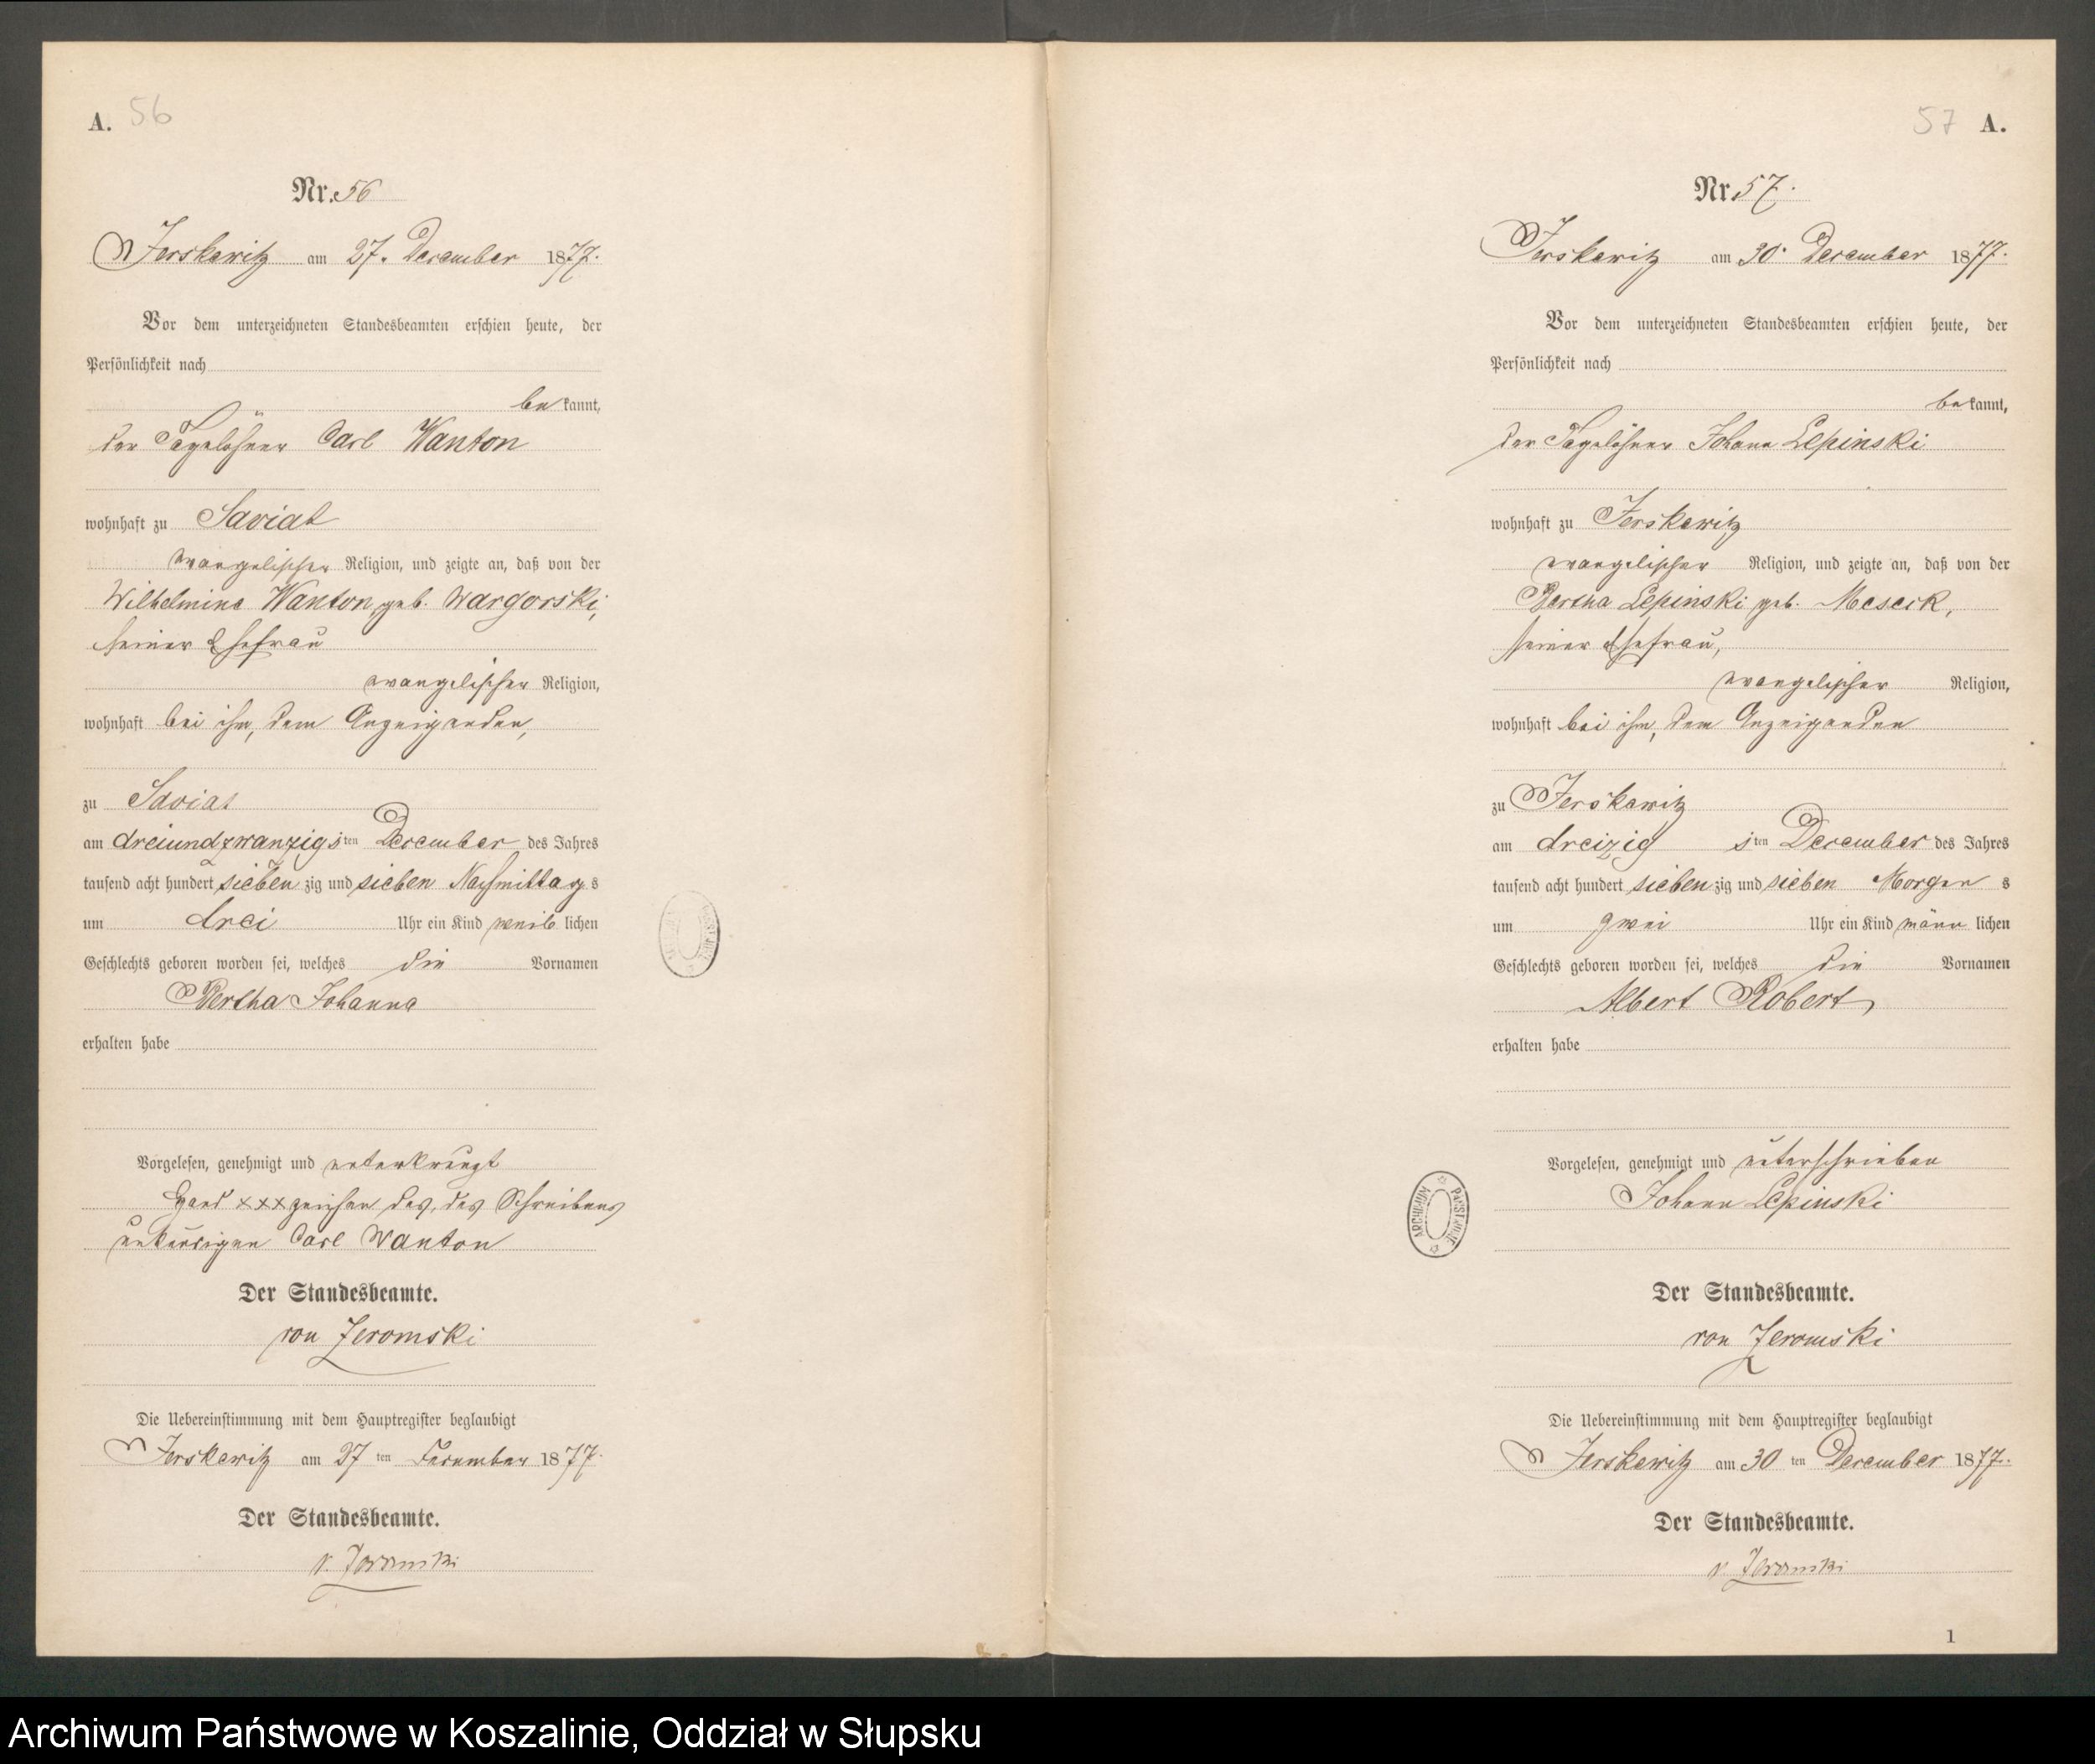 A. 56
Nr. 56
Jerskewitz am 27. December 1877.
Vor dem unterzeichneten Standesbeamten erschien heute, der
Persönlichkeit nach
be kannt,
der Tagelöhner Carl Wanton
wohnhaft zu Saviat
evangelischer Religion, und zeigte an, daß von der
Wilhelmine Wanton geb. Wargorski,
seiner Ehefrau
evangelischer Religion,
wohnhaft bei ihm, dem Anzeigenden,
zu Saviat
am dreiundzwanzigsten December des Jahres
tausend acht hundert sieben zig und sieben Nachmittag s
um drei Uhr ein Kind weib lichen
Geschlechts geboren worden sei, welches die Vornamen
Bertha Johanna
erhalten habe
Vorgelesen, genehmigt und unterkreuzt
Hand xxx zeichen des, des Schreibens
unkundigen Carl Wanton
Der Standesbeamte.
von Jeromski
Die Uebereinstimmung mit dem Hauptregister beglaubigt
Jerskewitz am 27 ten December 1877.
Der Standesbeamte.
v. Jeromski
57 A.
Nr. 57.
Jerskewitz am 30. December 1877.
Vor dem unterzeichneten Standesbeamten erschien heute, der
Persönlichkeit nach
be kannt,
der Tagelöhner Johann Lepinski
wohnhaft zu Jerskewitz
evangelischer Religion, und zeigte an, daß von der
Bertha Lepinski geb. Meseck,
seiner Ehefrau,
evangelischer Religion,
wohnhaft bei ihm, dem Anzeigenden
zu Jerskewitz
am dreizig sten December des Jahres
tausend acht hundert sieben zig und sieben Morgen s
um zwei Uhr ein Kind männ lichen
Geschlechts geboren worden sei, welches die Vornamen
Albert Robert,
erhalten habe
Vorgelesen, genehmigt und unterschrieben
Johann Lepinski
ARCHIWUM PAŃSTWOWE
Der Standesbeamte.
von Jeromski
Die Uebereinstimmung mit dem Hauptregister beglaubigt
Jerskewitz am 30 ten December 1877.
Der Standesbeamte.
v. Jeromski
1
Archiwum Państwowe w Koszalinie, Oddział w Słupsku